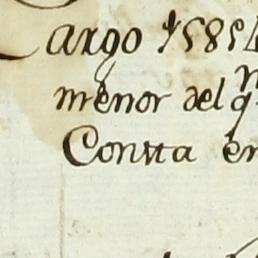 Cargo 1585
menor del q
Contta en